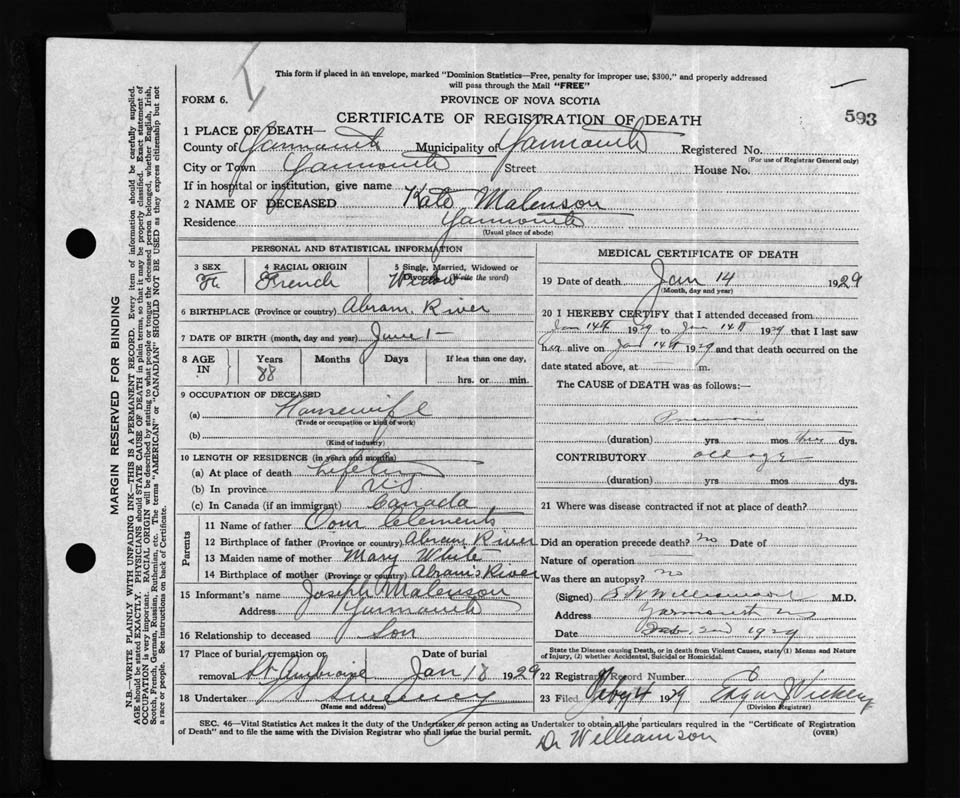 This form if placed in an envelope, marked "Dominion Statistics—Free, penalty for improper use, $300," and properly addressed
will pass through the Mail "FREE"
FORM 6. PROVINCE OF NOVA SCOTIA
593
CERTIFICATE OF REGISTRATION OF DEATH
1 PLACE OF DEATH—
County of Yarmouth Municipality of Yarmouth Registered No.
(For use of Registrar General only)
City or Town Yarmouth Street House No.
If in hospital or institution, give name
2 NAME OF DECEASED Kate Malenson
Residence Yarmouth
(Usual place of abode)
PERSONAL AND STATISTICAL INFORMATION
3 SEX 4 RACIAL ORIGIN 5 Single, Married, Widowed or
Divorced (Write the word)
French Widow
6 BIRTHPLACE (Province or country) Abram River
7 DATE OF BIRTH (month, day and year) June 1-
8 AGE IN Years Months Days If less than one day,
88 hrs. or min.
9 OCCUPATION OF DECEASED
(a) Housewife
(Trade or occupation or kind of work)
(b)
(Kind of industry)
10 LENGTH OF RESIDENCE (in years and months)
(a) At place of death
(b) In province
(c) In Canada (if an immigrant) Canada
Parents
11 Name of father Clements
12 Birthplace of father (Province or country) Abram River
13 Maiden name of mother Mary White
14 Birthplace of mother (Province or country) Abrams River
15 Informant's name Joseph Malenson
Address Yarmouth
16 Relationship to deceased Son
17 Place of burial, cremation or Date of burial
removal St. Ambroise Jan 18 1929
18 Undertaker Sweeney
(Name and address)
MEDICAL CERTIFICATE OF DEATH
19 Date of death Jan 14 1929
(Month, day and year)
20 I HEREBY CERTIFY that I attended deceased from
Jan 14th 1929 to Jan 14th 1929 that I last saw
her alive on Jan 14th 1929 and that death occurred on the
date stated above, at m.
The CAUSE of DEATH was as follows:—
Pneumonia
(duration) yrs mos dys.
CONTRIBUTORY old age
(duration) yrs. mos dys.
21 Where was disease contracted if not at place of death?
Did an operation precede death? no Date of
Nature of operation
Was there an autopsy? no
(Signed) Williamson M.D.
Address Yarmouth
Date 2nd 1929
State the Disease causing Death, or in death from Violent Causes, state (1) Means and Nature
of Injury, (2) whether Accidental, Suicidal or Homicidal.
22 Registrar's Record Number
23 Filed Feby 4 1929 Edgar J Vickery
(Division Registrar)
SEC. 46—Vital Statistics Act makes it the duty of the Undertaker or person acting as Undertaker to obtain all the particulars required in the "Certificate of Registration
of Death" and to file the same with the Division Registrar who shall issue the burial permit.
(OVER)
Dr Williamson
MARGIN RESERVED FOR BINDING
N.B.—WRITE PLAINLY WITH UNFADING INK—THIS IS A PERMANENT RECORD. Every item of information should be carefully supplied.
AGE should be stated EXACTLY. PHYSICIANS should STATE CAUSE OF DEATH in plain terms, so that it may be properly classified. Exact statement of
OCCUPATION is very important. RACIAL ORIGIN will be described by stating to what people or tongue the deceased person belonged, whether English, Irish,
Scotch, French, German, Russian, Ruthenian, etc. The terms "AMERICAN" or "CANADIAN" SHOULD NOT BE USED as they express citizenship but not
a race or people. See instructions on back of Certificate.